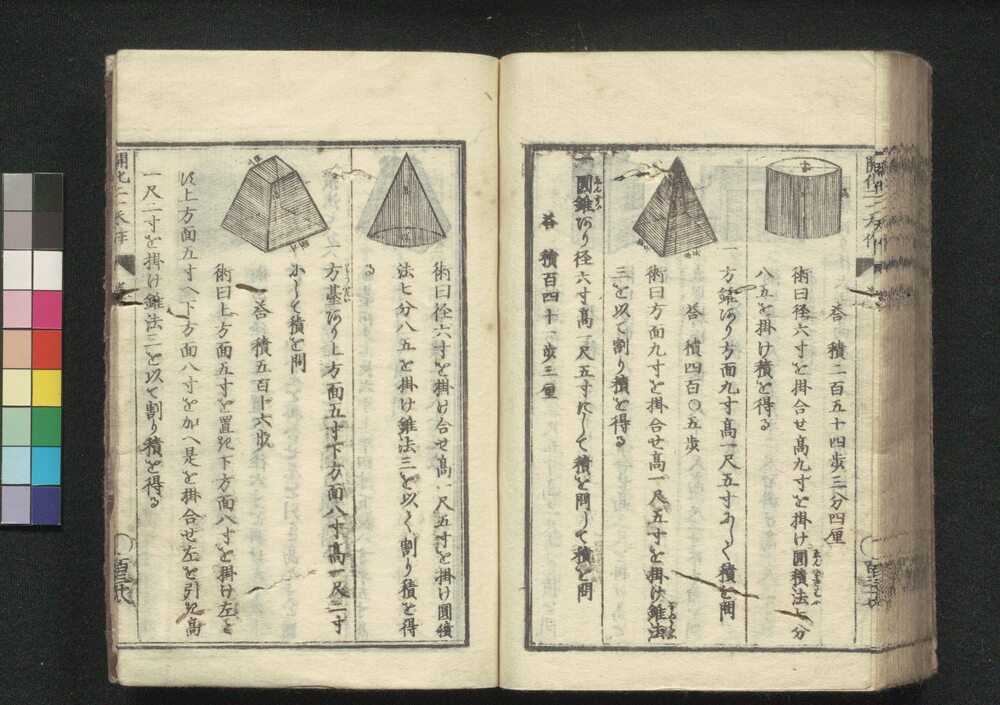 答 積二百五十四歩三分四厘
術曰径六寸を掛合せ高九寸を掛け圓積法七分
八五を掛け積を得る
一 方錐あり方面九寸高一尺五寸あ〱積を問
答 積四百〇五歩
術曰方面九寸を掛合せ高一尺五寸を掛け錐法
三を以て割り積を得る
一 圓錐あり径六寸高一尺五寸にして積を問して積を問
答 積百四十一歩三厘
術曰径六寸を掛け合せ高一尺五寸を掛け圓積
法七分八五を掛け錐法三を以て割り積を得
る
一 方臺あり上方面五寸下方面八寸高一尺二寸
小して積を問
答 積五百十六歩
術曰上方面五寸を置き下方面八寸を掛け左と
し上方面五寸へ下方面八寸を加へ是を掛合せ左を引き高
一尺二寸を掛け錐法三を以て割り積を得る